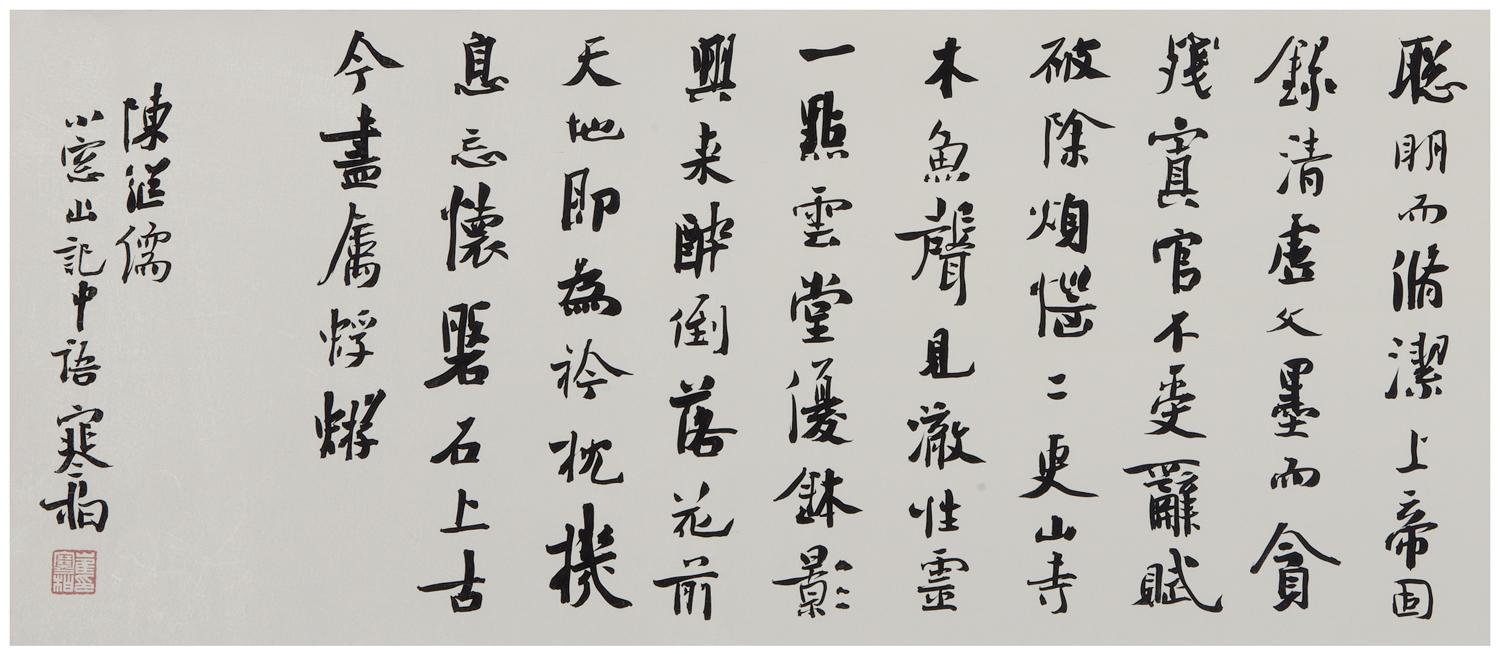 聡明而脩潔上帝固
錄清虛文墨而貪
殘冥官不受辭賦
破除煩惱二更山寺
木魚聲見澈性靈
一點雲堂優鉢影
興来醉倒落花前
天地即為衿枕機
息忘懷磐石上古
今盡屬蜉蝣
陳繼儒
小窓幽記中語寒柏
崔印寒柏